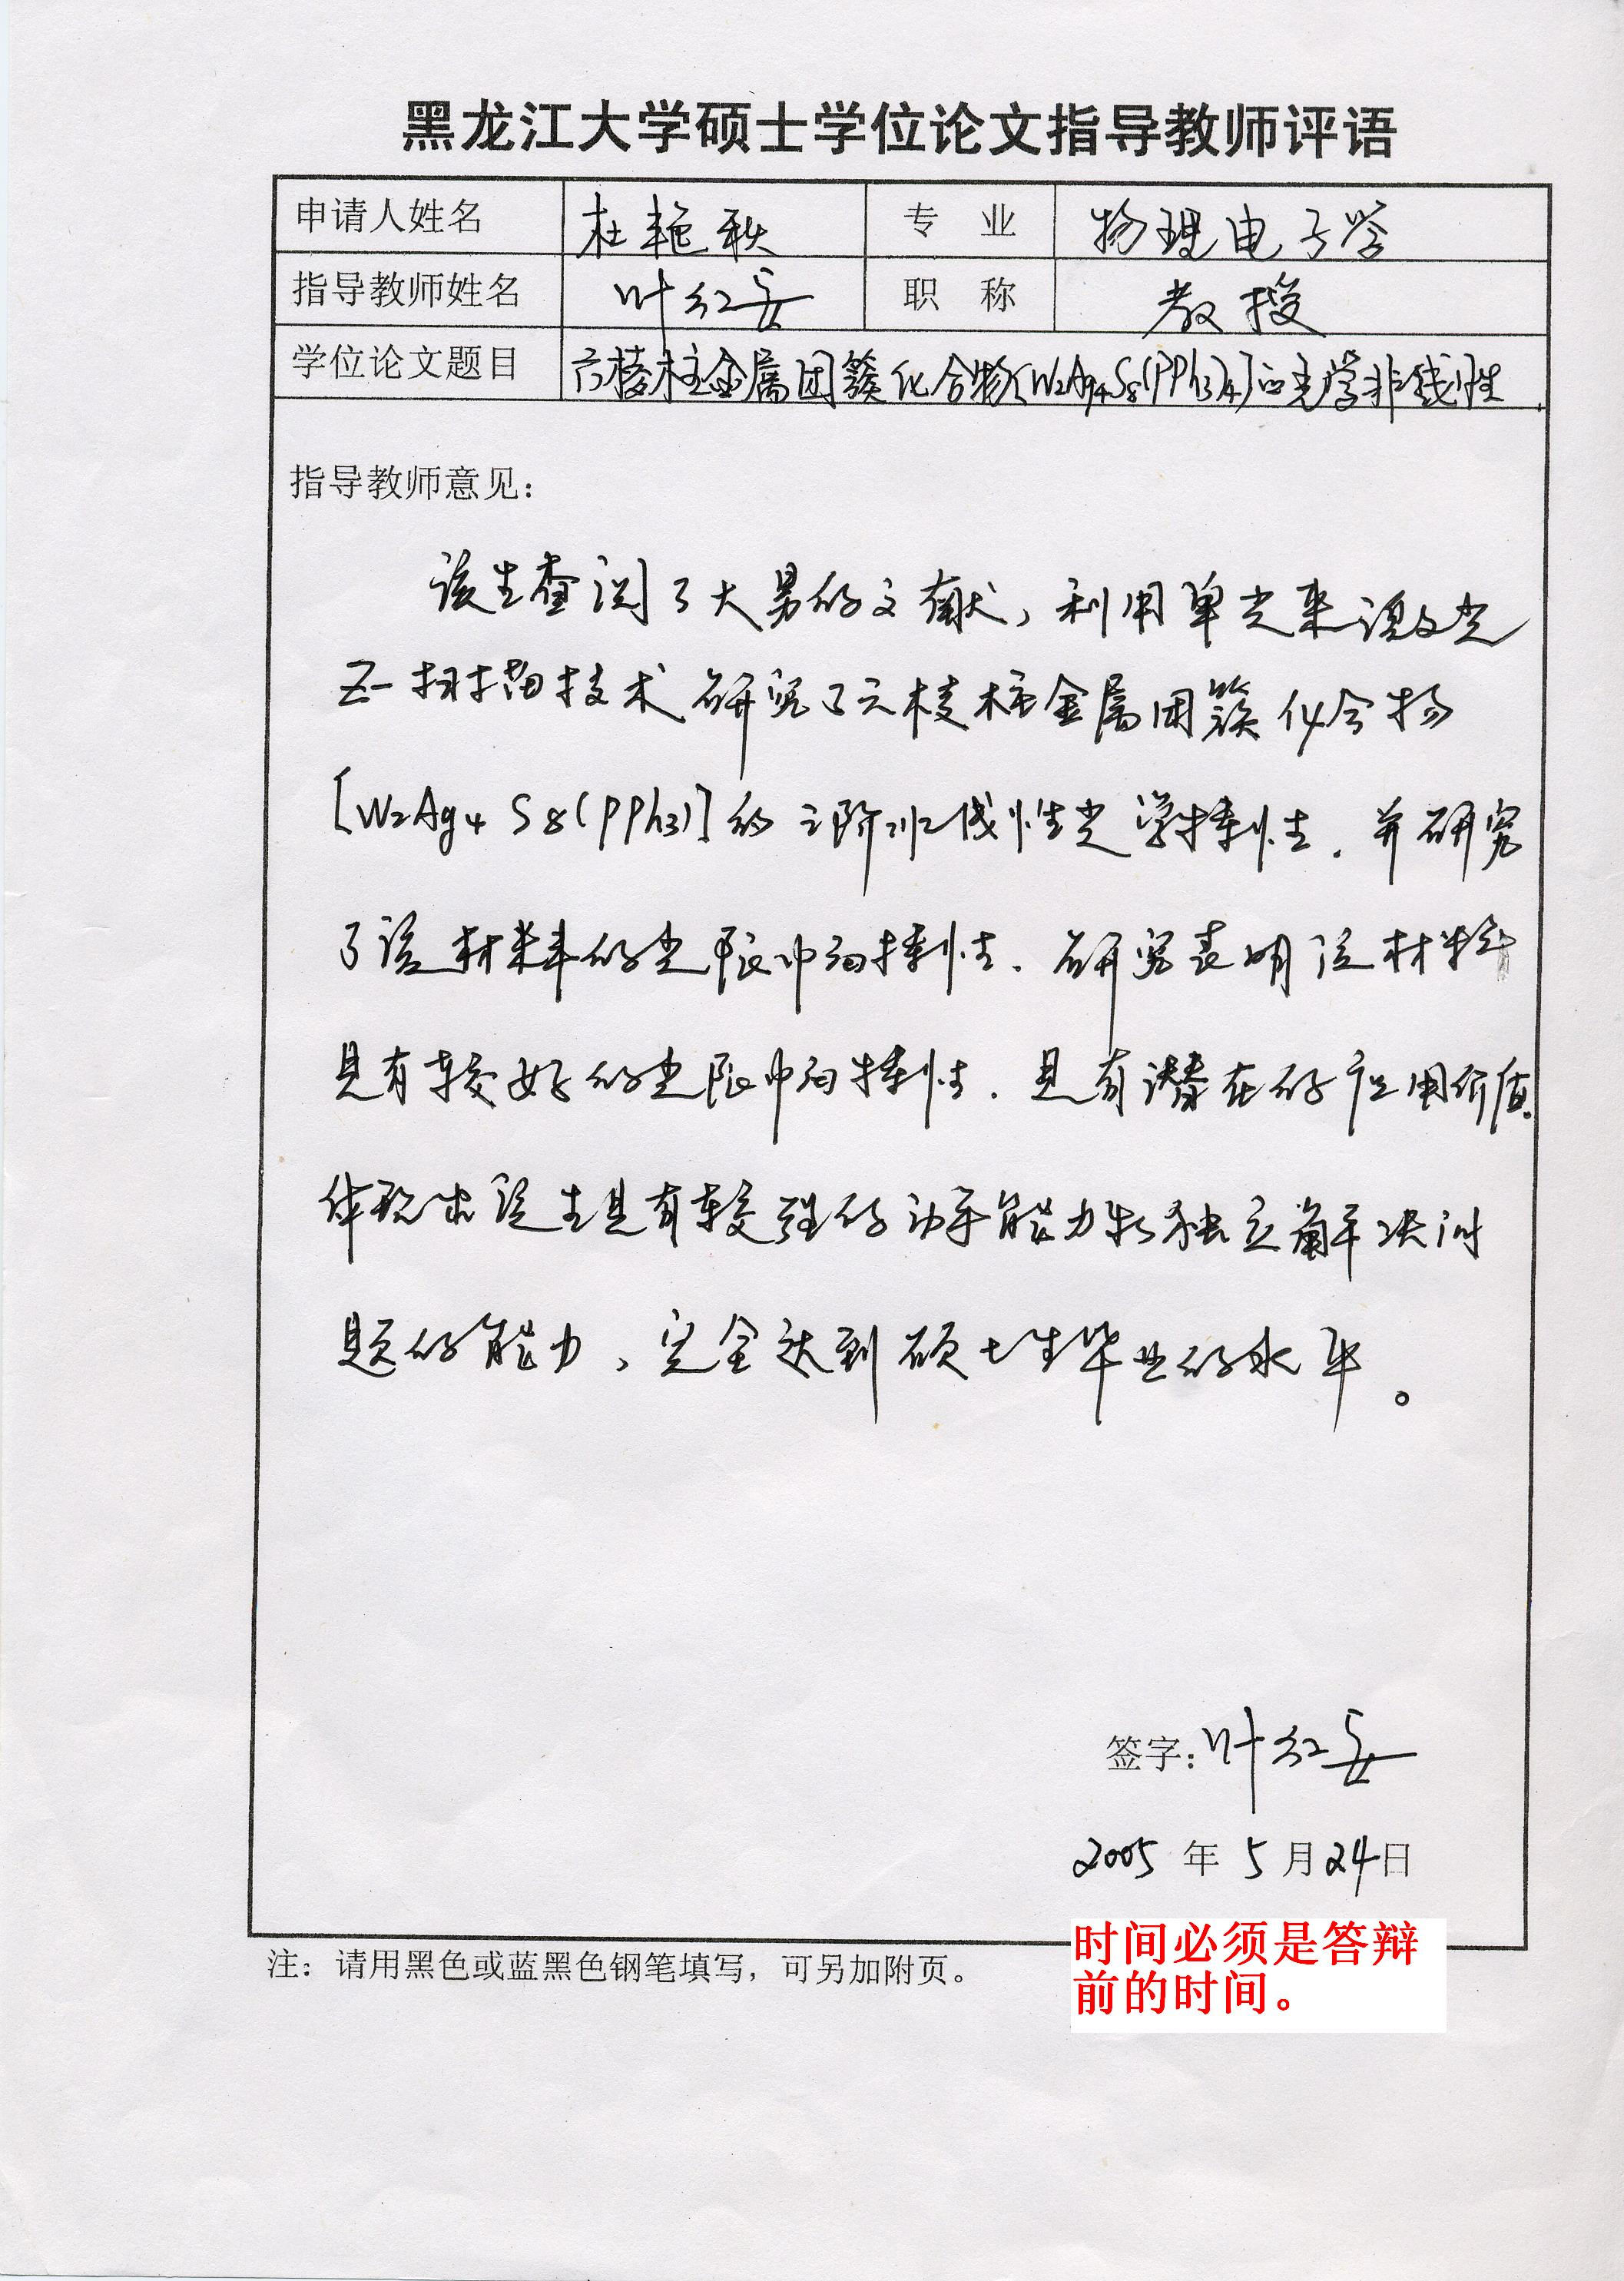 黑龙江大学硕士学位论文指导教师评语
申请人姓名 杜艳秋 专 业 物理电子学
指导教师姓名 叶红安 职 称 教授
学位论文题目 六棱柱金属团簇化合物[W2Ag4S8(PPh3)4]的光学非线性
指导教师意见：
该生查阅了大男的文献，利用单光束激光
Z—扫描技术研究了六棱柱金属团簇化合物
[W2Ag4S8(PPh3)]的三阶非线性光学特性．并研究
了该材料的光限幅特性．研究表明该材料
具有较好的光限幅特性．具有潜在的应用价值．
体现出该生具有较强的动手能力和独立解决问
题的能力、完全达到硕士生毕业的水平。
签字：叶红安
2005 年 5 月 24 日
时间必须是答辩
前的时间。
注：请用黑色或蓝黑色钢笔填写，可另加附页。